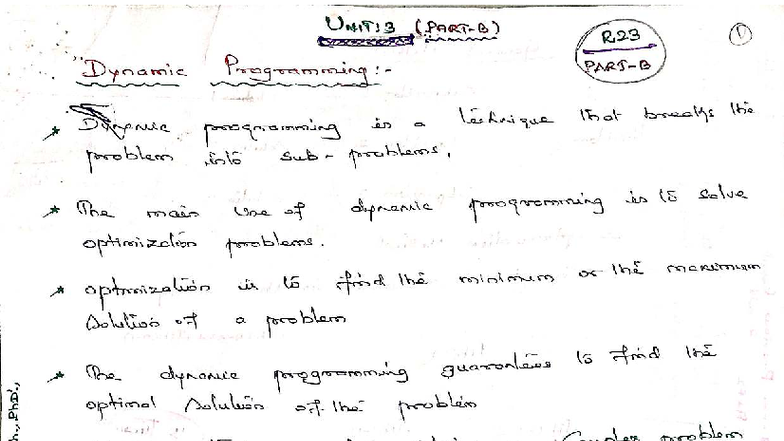 UNIT:3 (PART-B)
R23
PART-B
1
"Dynamic Programming:-
* Dynamic programming is a technique that breaks the
problem into sub-problems.
* The main use of dynamic programming is to solve
optimization problems.
* optimization is to find the minimum or the maximum
solution of a problem
* The dynamic programming guarantees to find the
optimal solution of the problem
problem
h., PhD.,